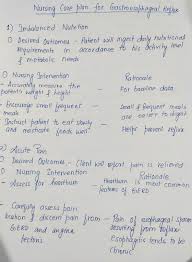 Nursing Care plan for Gastroesophageal Reflux
1) Imbalanced Nutrition
O Desired Outcomes - Patient will ingest daily nutritional
requirements in accordance to his activity level
& metabolic needs
O Nursing Intervention Rationale
- Accurately measure the - For baseline data
patient's weight & height
- Encourage small frequent - Small & frequent meals
meals are easier to digest
- Instruct patient to eat slowly
and masticate foods well - Helps prevent reflux
2) Acute Pain
O Desired Outcomes - Client will report pain is relieved
O Nursing Intervention Rationale
- Assess for heartburn - Heartburn is most common
features of GERD
- Carefully assess pain
location & discern pain from - Pain of esophageal spasm
GERD and angina resulting from reflux
pectoris Esophagitis tends to be
chronic